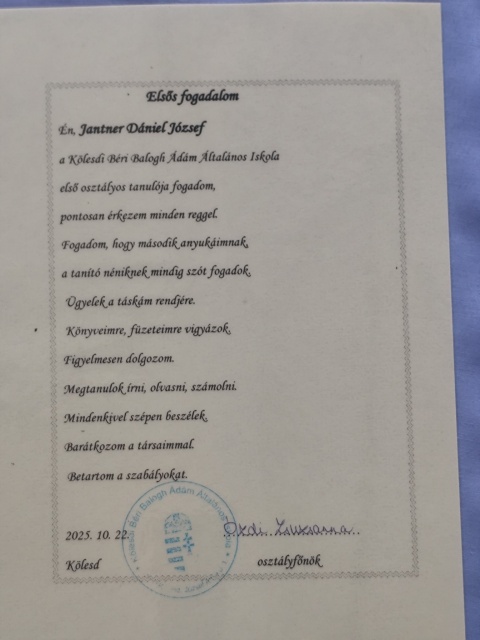 Elsős fogadalom
Én, Jantner Dániel József
a Kölesdi Béri Balogh Ádám Általános Iskola
első osztályos tanulója fogadom,
pontosan érkezem minden reggel.
Fogadom, hogy második anyukáimnak,
a tanító néniknek mindig szót fogadok.
Ügyelek a táskám rendjére.
Könyveimre, füzeteimre vigyázok.
Figyelmesen dolgozom.
Megtanulok írni, olvasni, számolni.
Mindenkivel szépen beszélek.
Barátkozom a társaimmal.
Betartom a szabályokat.
Kölesdi Béri Balogh Ádám Általános
2025. 10. 22.
Zsuzsanna
Kölesd osztályfőnök